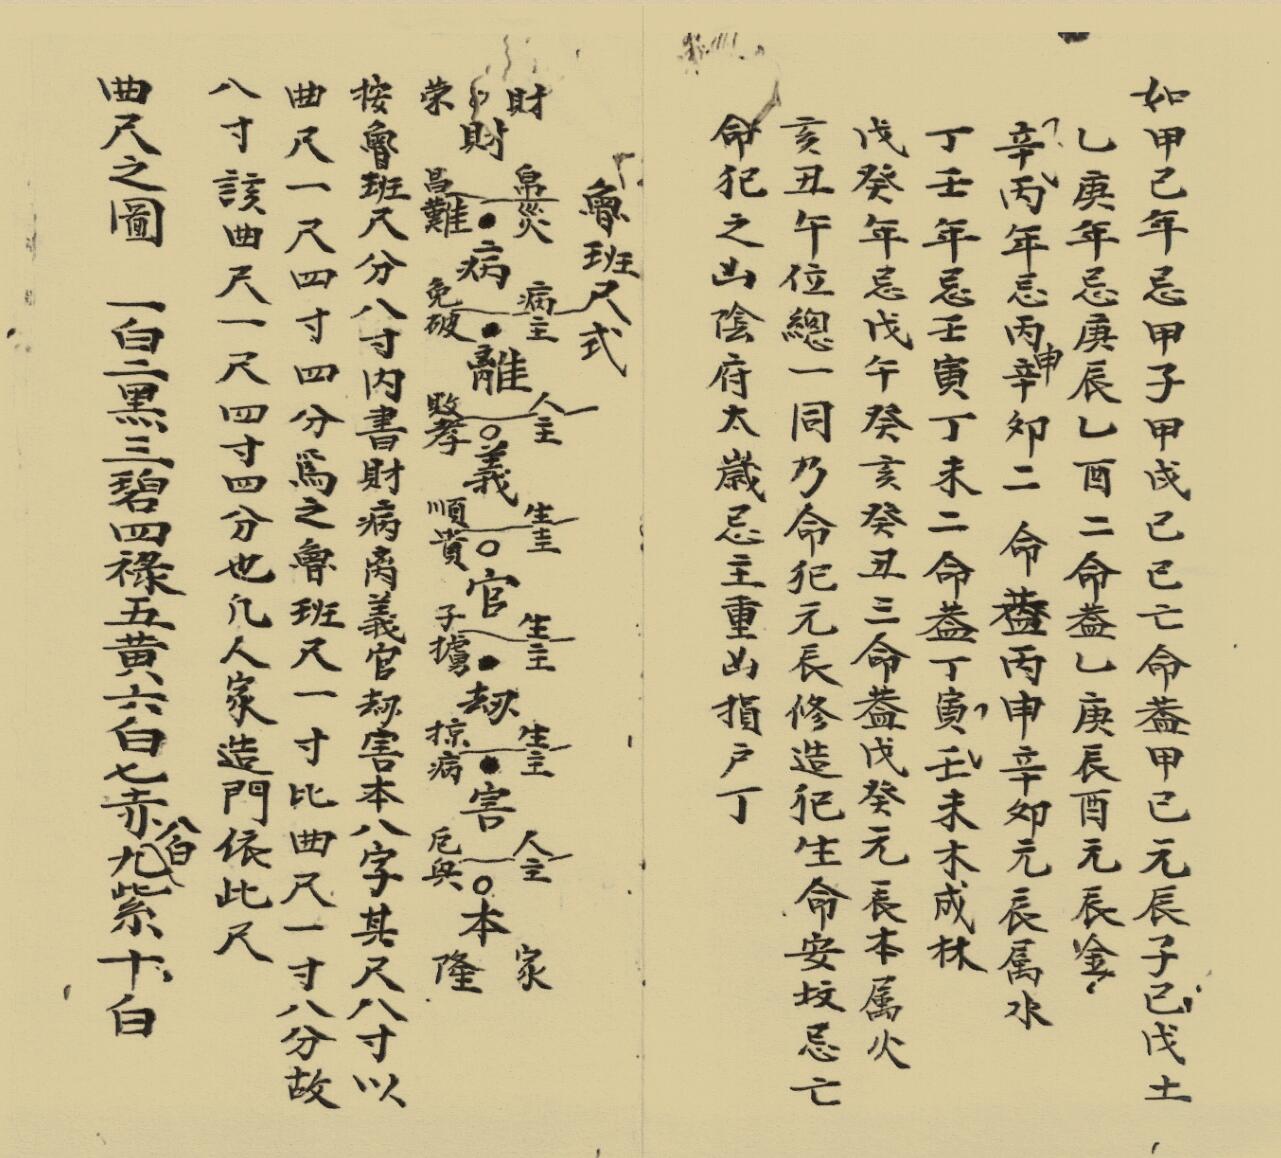 如甲己年忌甲子甲戌己巳亡命葢甲己元辰子巳戊土
乙庚年忌庚辰乙酉二命葢乙庚辰酉元辰金
辛丙年忌丙申辛卯二命葢丙申辛卯元辰属水
丁壬年忌壬寅丁未二命葢丁寅壬未木成林
戊癸年忌戊午癸亥癸丑三命葢戊癸元辰本属火
亥丑午位總一同乃命犯元辰修造犯生命安坟忌亡
命犯之凶陰府太歲忌主重凶損户丁
魯班尺式
財 帛災 病主 人主 生主 生主 生主 人主 家
財病離義官劫害本
荣 昌難 免破 敗孝 順貴 子擄 掠病 厄與 隆
按魯班尺分八寸内書財病离義官劫害本八字其尺八寸以
曲尺一尺四寸四分爲之魯班尺一寸比曲尺一寸八分故
八寸該曲尺一尺四寸四分也凡人家造門依此尺
曲尺之圖 一白二黑三碧四祿五黄六白七赤八白九紫十白